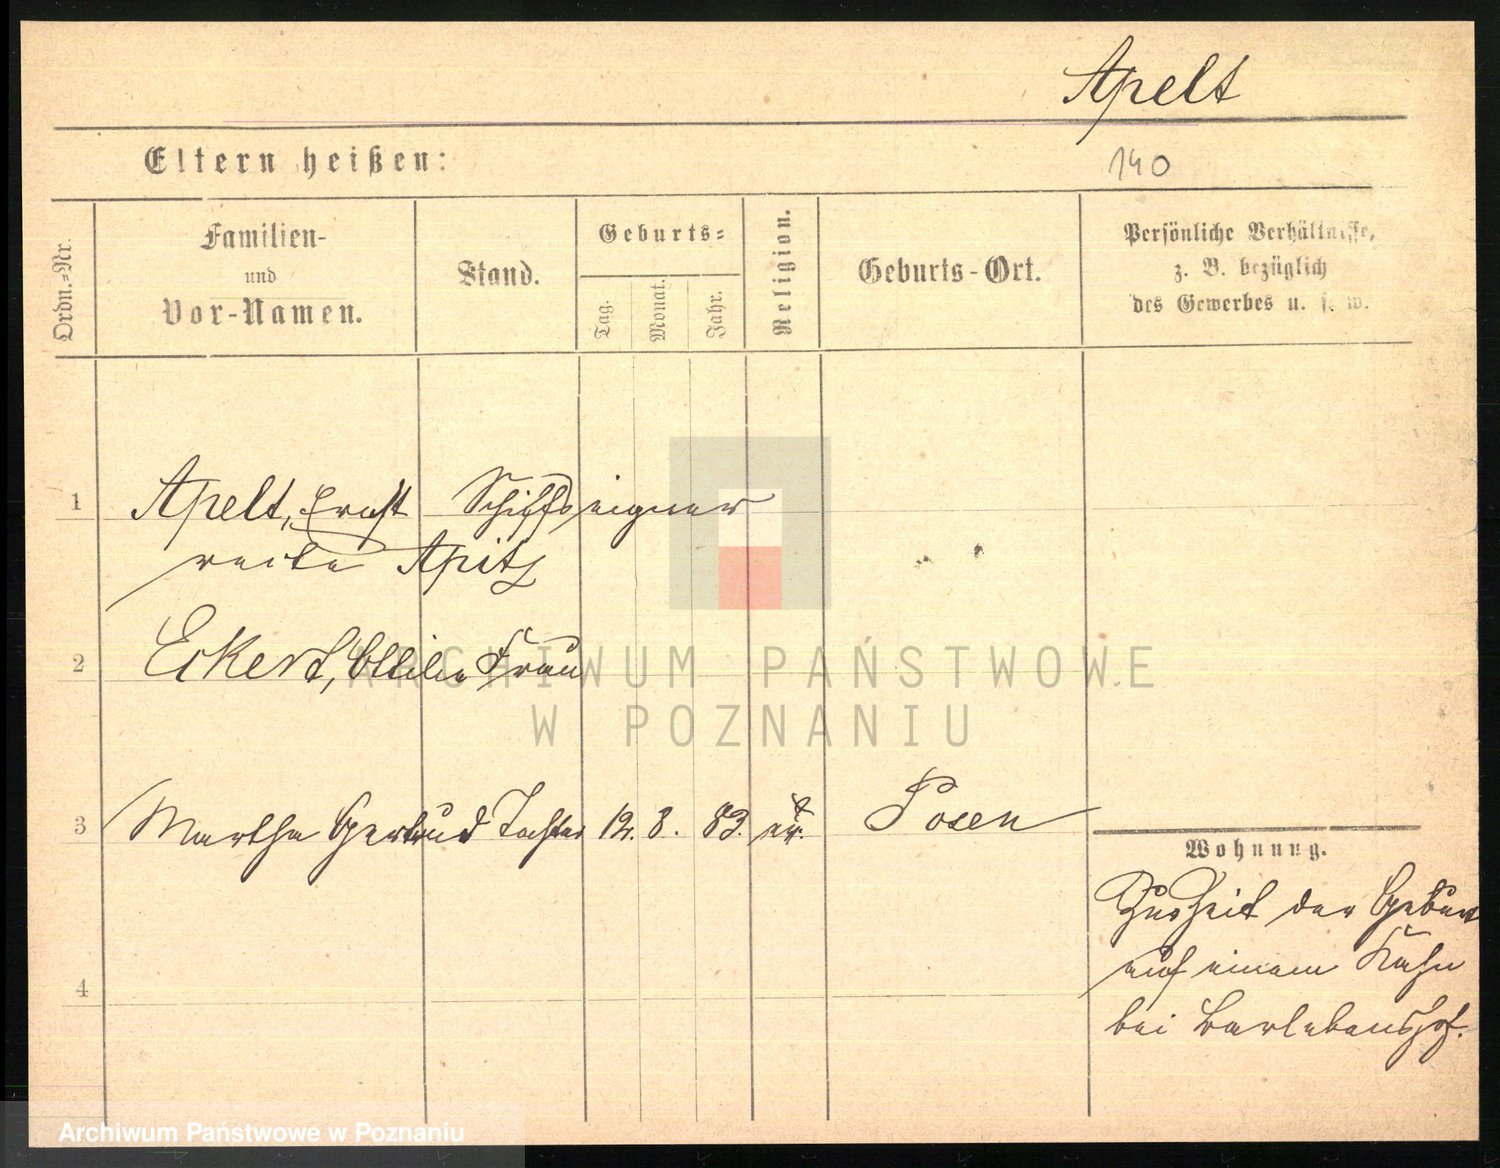 Apelt
Eltern heißen:
140
Ordn.-Nr.
Familien-
und
Vor-Namen.
Stand.
Geburts-
Tag.
Monat.
Jahr.
Religion.
Geburts-Ort.
Persönliche Verhältnisse,
z. B. bezüglich
des Gewerbes u. s. w.
1 Apelt, Ernst Schiffseigner
recte Apitz
2 Eckert, Ottilie Frau
3 Martha Gertrud Tochter 12. 8. 83. ev. Posen
Wohnung.
Zur Zeit der Geburt
auf einem Kahn
bei Barlebenshof.
4
ARCHIWUM PAŃSTWOWE
W POZNANIU
Archiwum Państwowe w Poznaniu